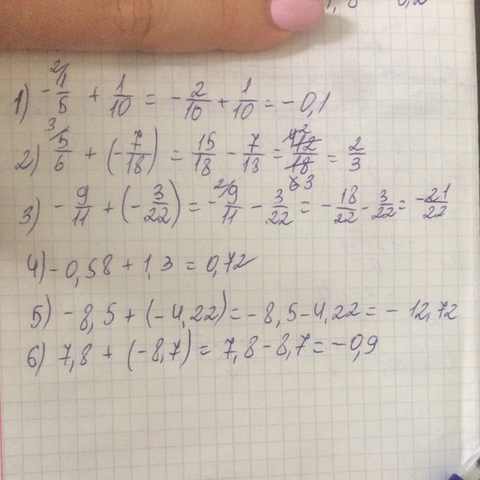 1) -1/5 + 1/10 = -2/10 + 1/10 = -0,1
2) 5/6 + (-7/18) = 15/18 - 7/18 = 12/18 = 2/3
3) -9/11 + (-3/22) = -9/11 - 3/22 = -18/22 - 3/22 = -21/22
4) -0,58 + 1,3 = 0,72
5) -8,5 + (-4,22) = -8,5 - 4,22 = -12,72
6) 7,8 + (-8,7) = 7,8 - 8,7 = -0,9